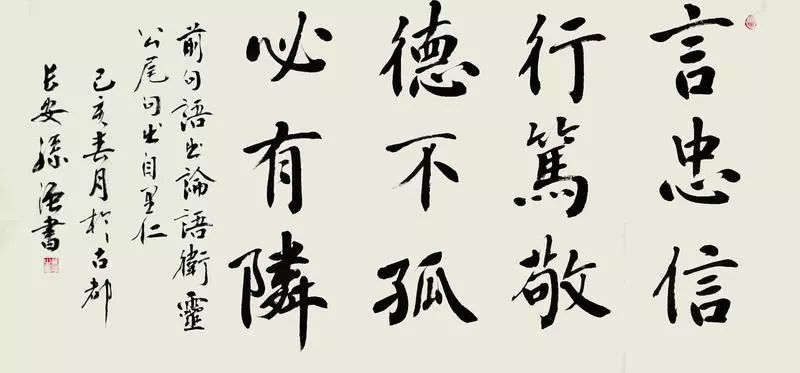 言忠信
行篤敬
德不孤
必有隣
前句語出論語衛靈
公尾句出自里仁
己亥春月於古都
长安孫書